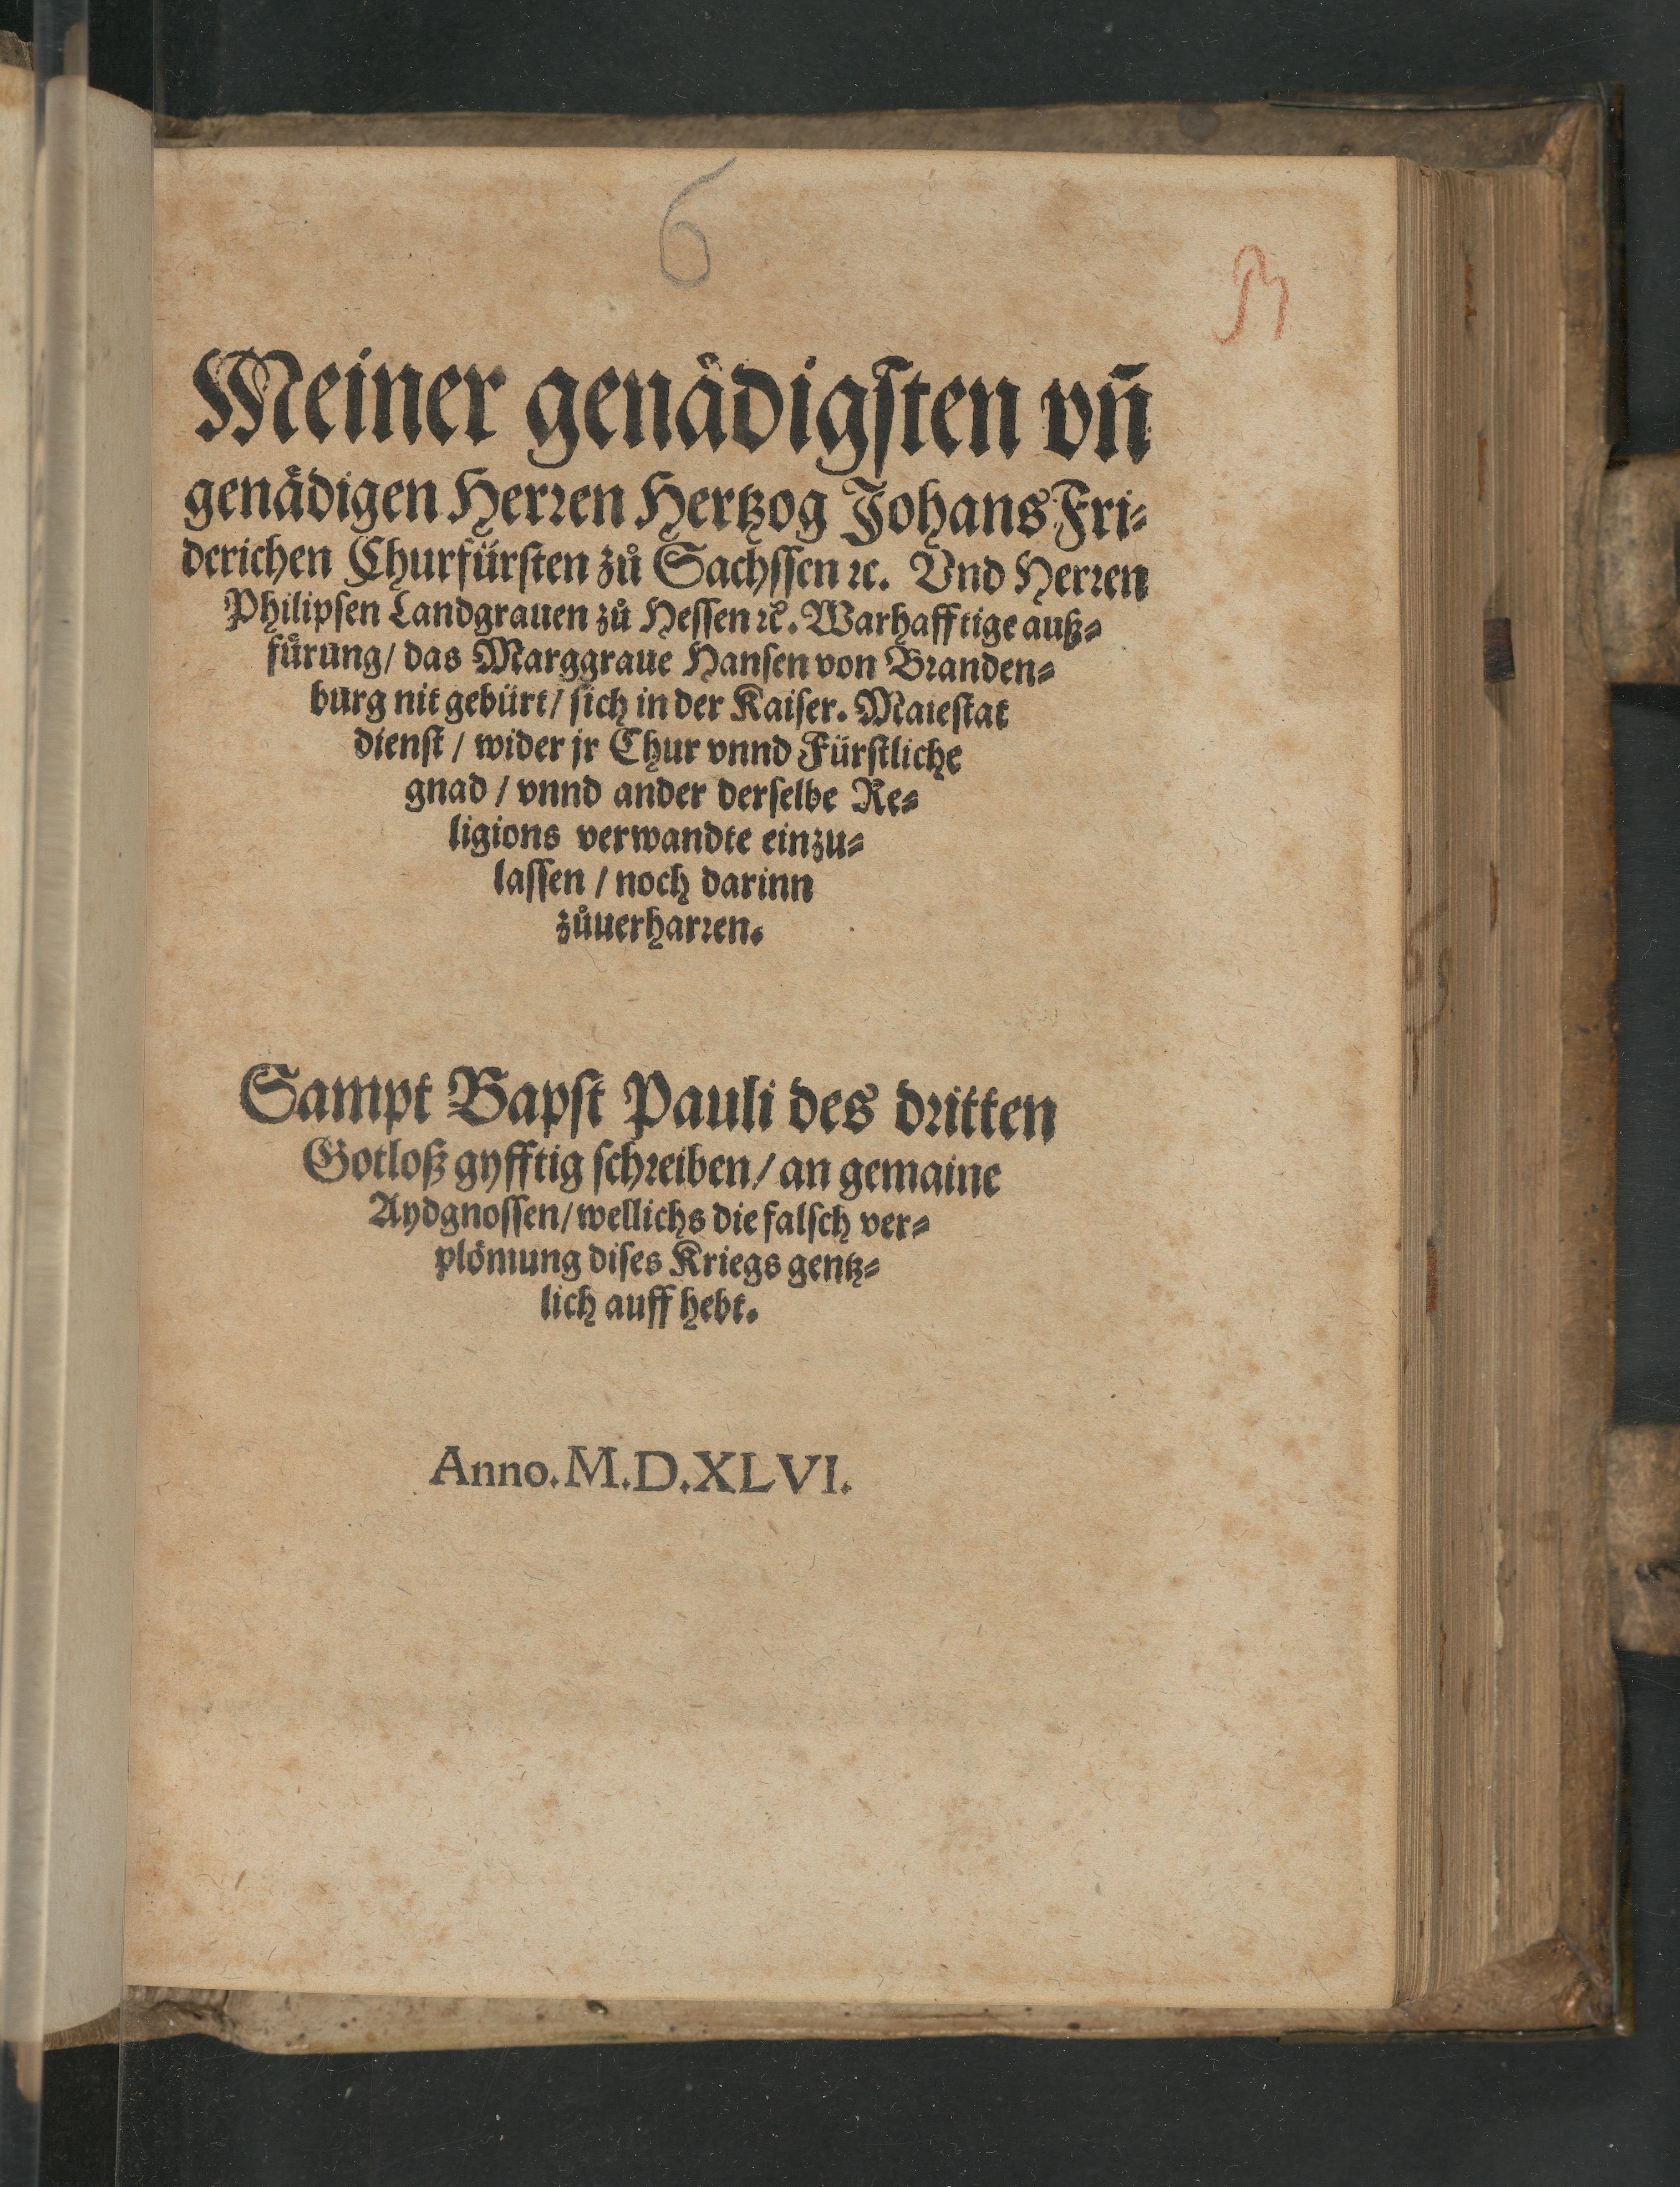 6
M
Meiner genådigsten vñ
genådigen Herren Hertzog Johans Fri-
derichen Churfürsten zů Sachssen ꝛc. Vnd Herren
Philipsen Landgrauen zů Hessen ꝛc. Warhafftige auß-
fürung/ das Marggraue Hansen von Branden-
burg nit gebürt/ sich in der Kaiser. Maiestat
dienst / wider jr Chur vnnd Fürstliche
gnad / vnnd ander derselbe Re-
ligions verwandte einzu-
lassen / noch darinn
zůuerharren.
Sampt Bapst Pauli des dritten
Gotloß gyfftig schreiben/ an gemaine
Aydgnossen/ wellichs die falsch ver-
plömung dises Kriegs gentz-
lich auff hebt.
Anno. M.D.XLVI.